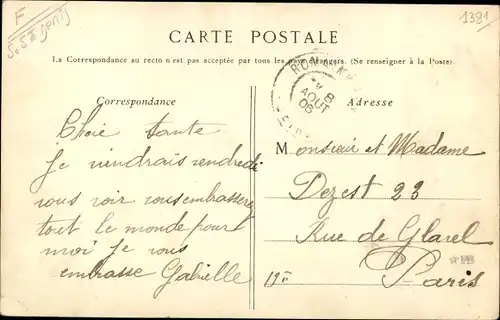 F
S.S.^t Denis
1381
CARTE POSTALE
La Correspondance au recto n'est pas acceptée par tous les pays étrangers. (Se renseigner à la Poste).
8
AOUT
06
Correspondance
Adresse
Cheie tante
je viendrais vendredi
vous voir vous embrasserez
tout le monde pour
moi je vous
embrasse Gabielle
Monsieur et Madame
Dezest 23
Rue de Glarel
Paris